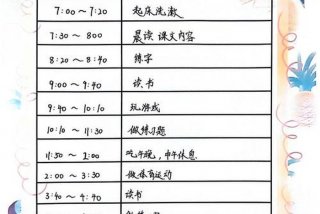 7:00 ~ 7:20 起床洗漱
7:30 ~ 800 晨读 课文内容
8:20 ~ 8:40 练字
9:00 ~ 9:40 读书
9:40 ~ 10:10 玩游戏
10:10 ~ 11:30 做练习题
11:30 ~ 2:00 吃午晚，中午休息
2:00 ~ 3:30 做体育运动
3:40 ~ 4:40 读书